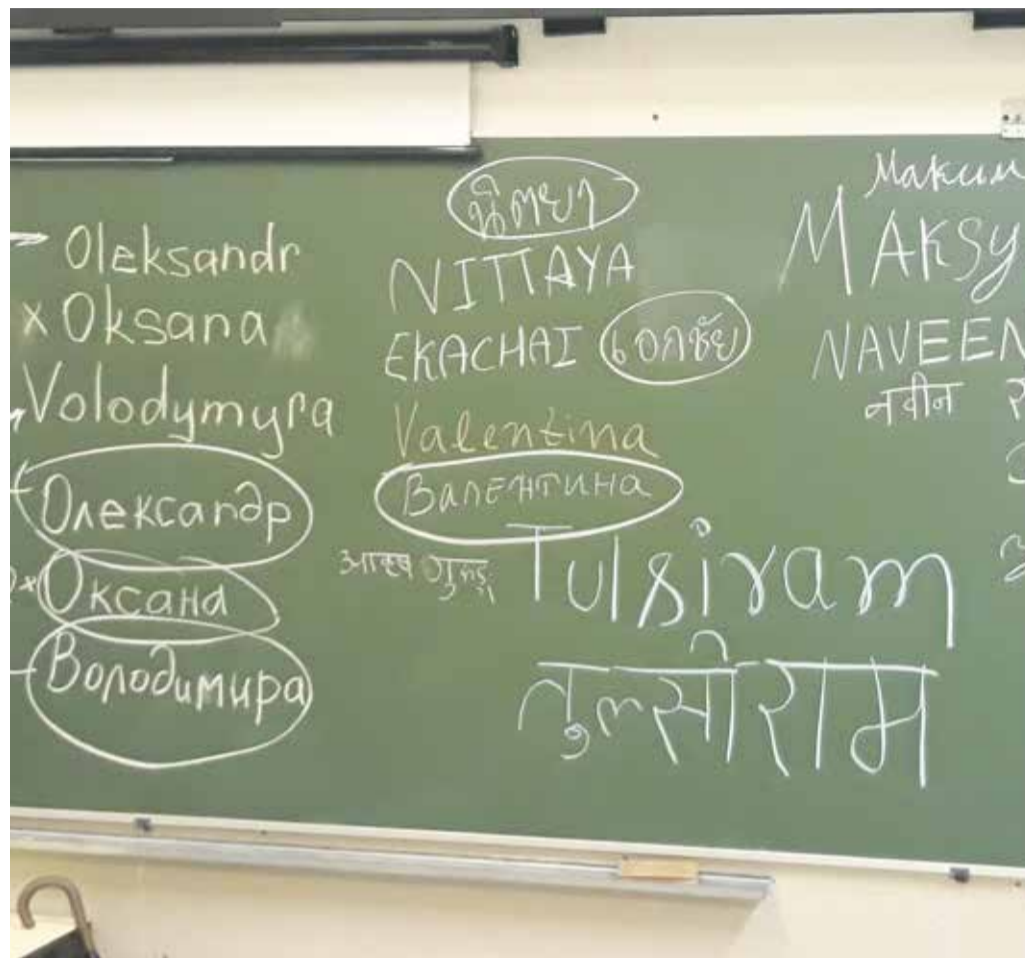 Oleksandr
x Oksana
Volodymyra
Олександр
x Оксана
Володимира
นิตยา
NITTAYA
EKACHAI เอกชัย
Valentina
Валентина
Tulsiram
तुलसीराम
Максим
MAKSY
NAVEEN
नवीन